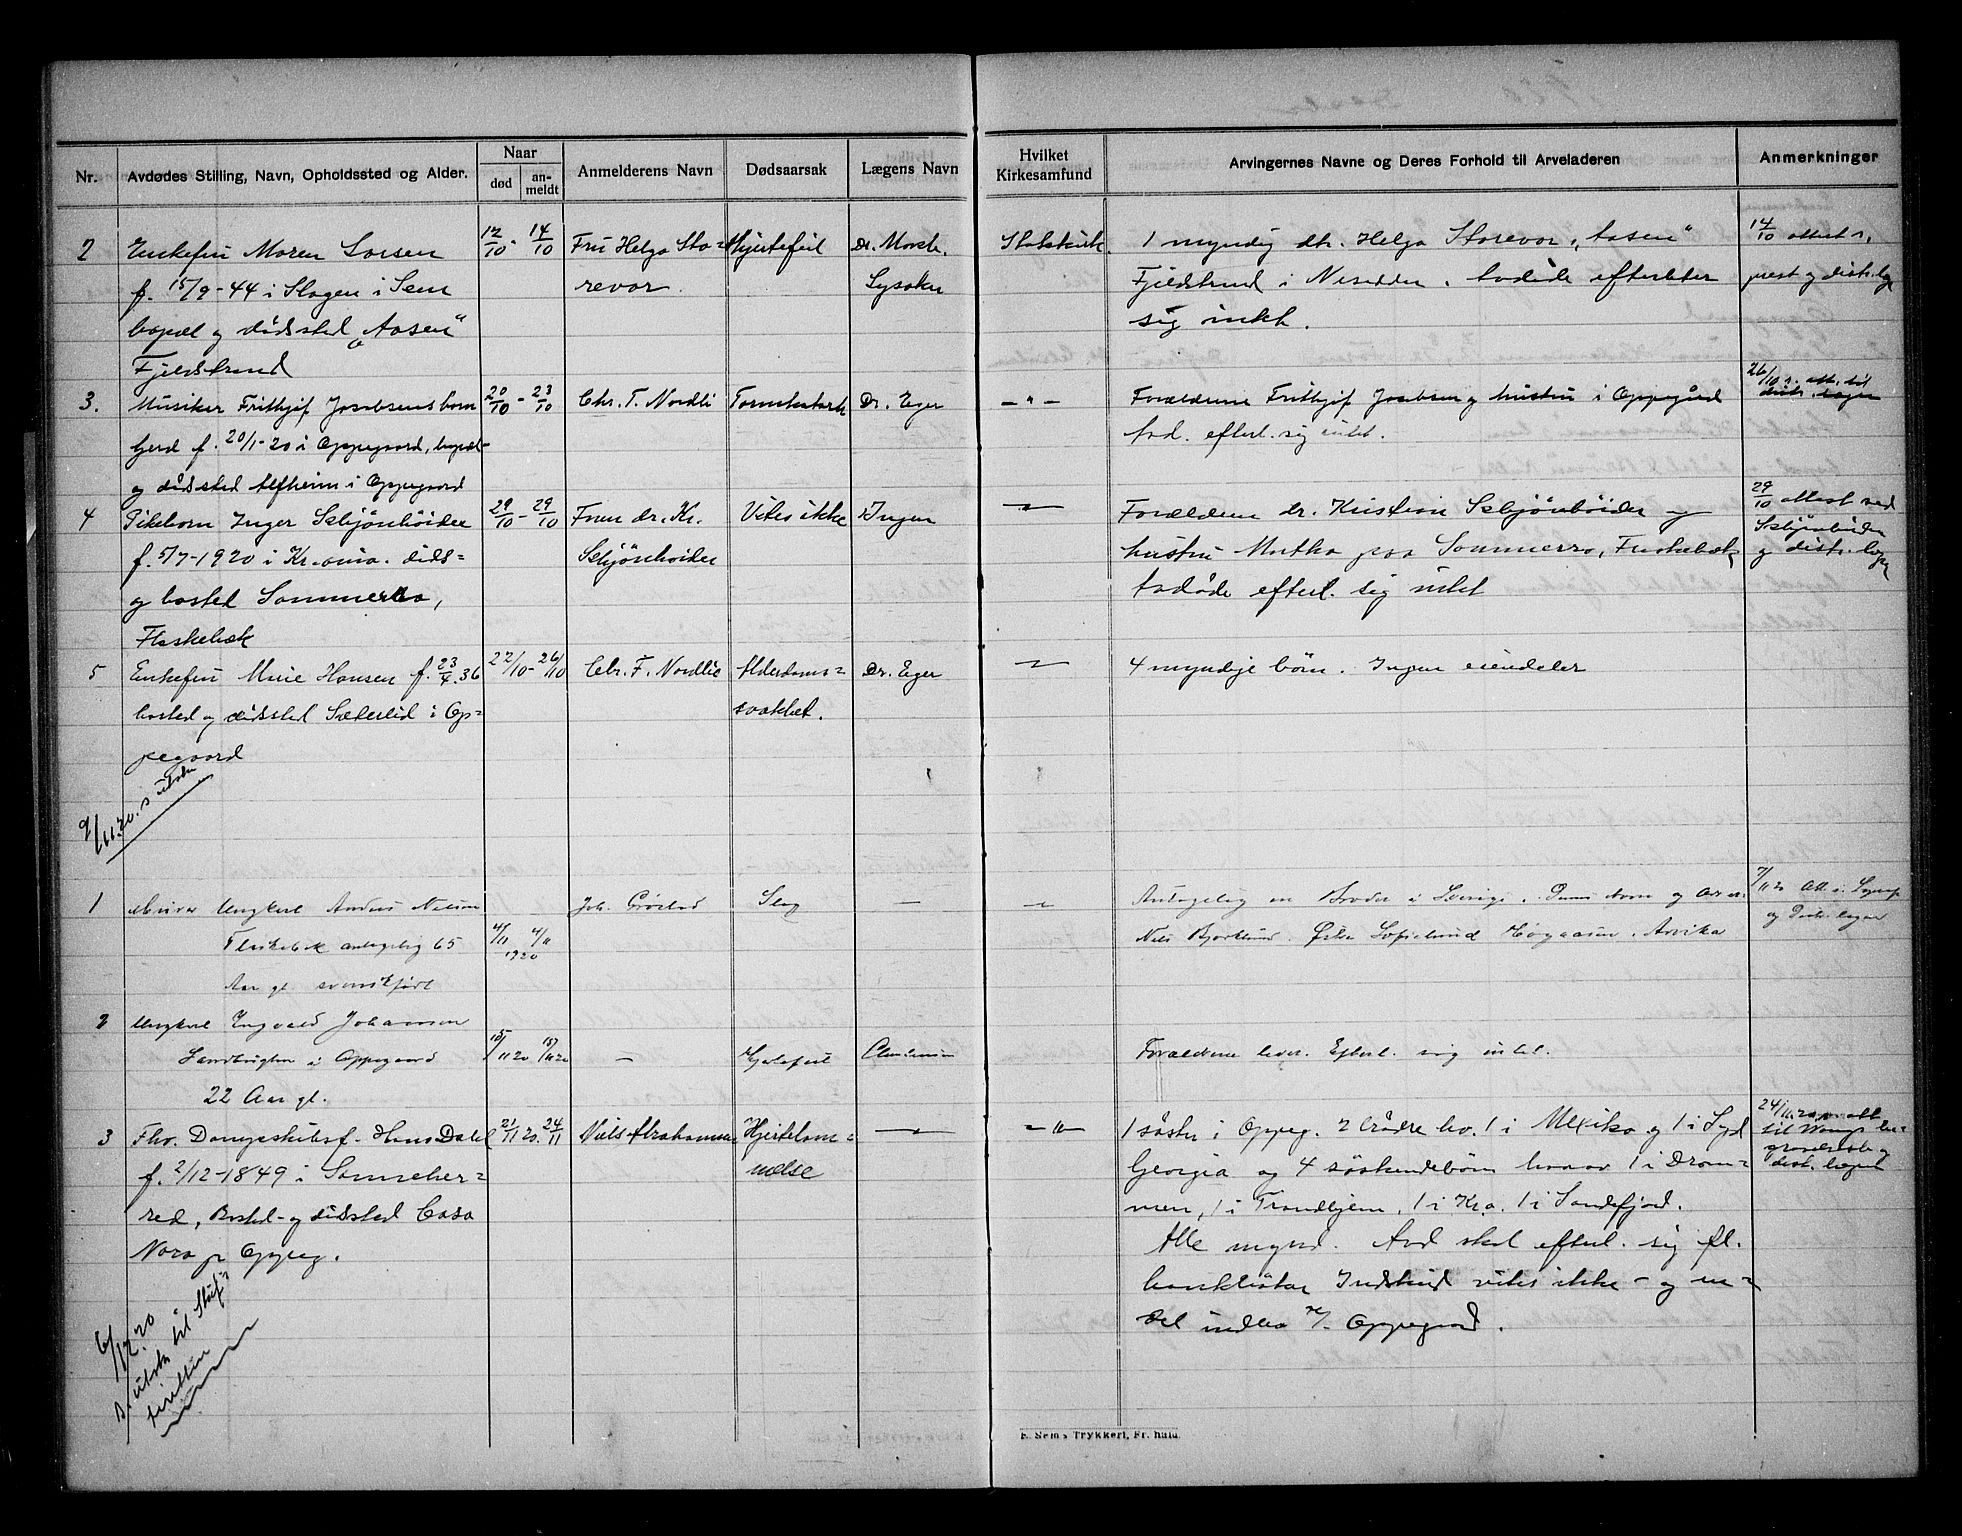 Nr.
Avdødes Stilling, Navn, Opholdssted og Alder.
Naar
død
an-
meldt
Anmelderens Navn
Dødsaarsak
Lægens Navn
Hvilket
Kirkesamfund
Arvingernes Navne og Deres Forhold til Arveladeren
Anmerkninger
2
Enkefru Maren Larsen
f. 15/9-44 i Slagen i Sem
bopæl og dødssted „Aasen"
Fjeldstrand
12/10 - 14/10
Fru Helga Sto-
revor
Hjertefeil
Dr. Morch.
Lysaker
Statskirk.
1 myndig dtr. Helga Storevor, „Aasen"
Fjeldstrand i Nesodden. Avdøde efterlater
sig intet.
14/10 attest s.
prest og distr.
3.
Musiker Frithjof Jacobsens barn
Gerd f. 20/1-20 i Oppegaard, bopæl
og dødssted Alfheim i Oppegaard
20/10 - 23/10
Chr. T. Nordli
Tarmkatarh
Dr. Eger
— „ —
Forældrene Frithjof Jacobsen og hustru i Oppegård
Avd. efterl. sig intet.
26/10 s. att. til
distr. lagen
4
Pikebarn Inger Schjönhöider
f. 5/7-1920 i Kr.ania. døds=
og bosted Sommerro,
Flaskebæk
29/10 - 29/10
Fruen dr. Kr.
Schjönhoider
Vites ikke
Ingen
Forældrene dr. Kristian Schjönhöider og
hustru Martha paa Sommerro, Flaskebæk
Avdøde efterl. sig intet
29/10 attest ved
Schjönhöider
og distr.
5
Enkefru Marie Hansen f. 23/4.36
bosted og dødssted Sæterlid i Op=
pegaard
22/10 - 26/10
Chr. T. Nordlie
Alderdoms=
svakhet.
Dr. Eger
4 myndige børn. Ingen eiendeler
9/11.20. s utskr
1
Murer Ungkarl Anders Nelson
Flaskebek antagelig 65
Aar gl. svenskfødt
4/11 4/11
1920
Joh. Grøstad
Slag
—
Antagelig en Broder i Sverige. Dennes Navn og Adr. er
Nils Bjorklund. Østra Sofielund Høgaasen. Arvika
7/11 20 Att. i
og Distr. lagen
2
Ungkarl Ingvald Johansen
i Oppegaard
22 Aar gl.
15/11 20 17/11 20
—
Hjertefeil
Forældrene lever. Efterl. sig intet.
3
Fhv. Dampskibsf. Hans Dahl
f. 2/12-1849 i Sanneher=
red, Bosted- og dødssted Casa
Nora pr Oppeg.
21/11 20. 24/11
Niels Abrahamsen
Hjertelam=
melse
— „ —
1 søster i Oppeg. 2 brødre hv. 1 i Mexiko og 1 i Syd
Georgia og 4 søskendebørn hvorav 1 i Dram=
men, 1 i Trondhjem, 1 i Kr.a. 1 i Sandefjord.
Alle mynd. Avd skal efterl. sig fl.
bankbøker Indskud vites ikke - og en=
del indbo i Oppegaard.
24/11.20 s. att
til
og
distr. lagen
6/12.20
s. utskr til Skif=
teretten
E. Sems Trykkeri, Fr.hald.